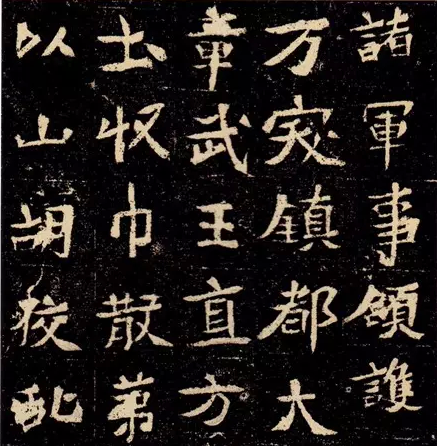 諸軍事領護
万宊镇都大
章武王直方
士収巾散苐
以山胡狡乱